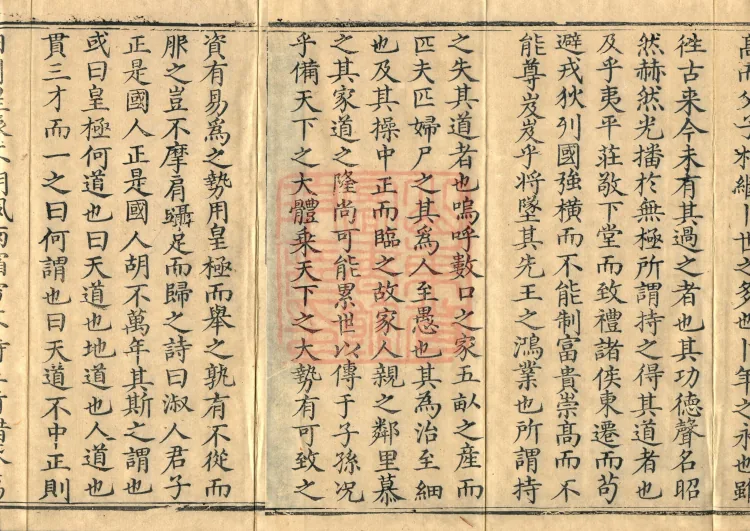 高而父子相繼世之多也卜年之永也雖
徃古来今未有其過之者也其功德聲名昭
然赫然光播於無極所謂持之得其道者也
及乎夷平莊敬下堂而致禮諸侯東遷而苟
避戎狄列國強橫而不能制富貴崇髙而不
能尊岌岌乎将墜其先王之鴻業也所謂持
之失其道者也嗚呼數口之家五畝之産而
匹夫匹婦尸之其爲人至愚也其為治至細
也及其操中正而臨之故家人親之鄰里慕
之其家道之隆尚可能累世以傳于子孫况
乎備天下之大體乗天下之大勢有可致之
資有易爲之勢用皇極而舉之孰有不從而
服之豈不摩肩躡足而歸之詩曰淑人君子
正是國人正是國人胡不萬年其斯之謂也
或曰皇極何道也曰天道也地道也人道也
貫三才而一之曰何謂也曰天道不中正則